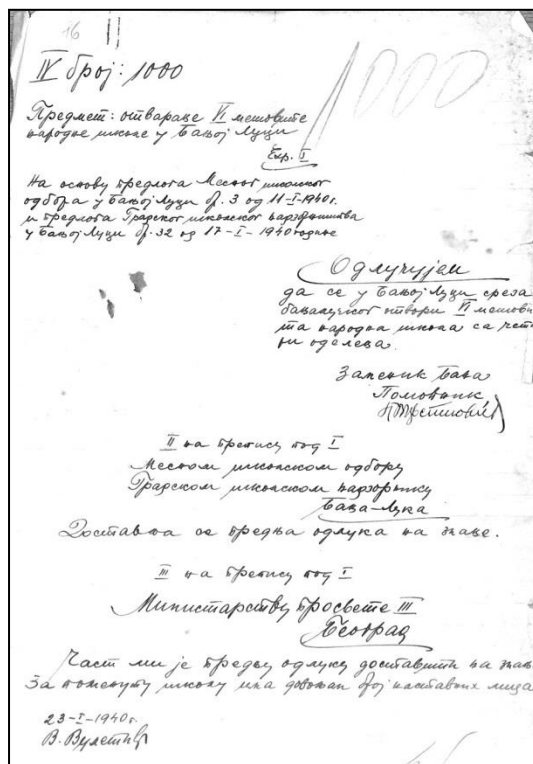 16
1000
IV број: 1000
Предмет: отварање VI мешовите
народне школе у Бањој Луци
Exp. I
На основу предлога Месног школског
одбора у Бањој Луци бр. 3 од 11-I-1940г.
и предлога Градског школског надзорништва
у Бањој Луци бр. 32 од 17-I-1940 године
Одлучујем
да се у Бањој Луци среза
бањалучког отвори VI мешови
та народна школа са чети
ри одељења.
Заменик Бана
Помоћник
II на препису под I
Месном школском одбору
Градском школском надзорнику
Бања-Лука
Доставља се предња одлука на знање.
III на препису под I
Министарству просвете III
Београд
Част ми је предњу одлуку доставити на знањ
За поменуту школу има довољан број наставних лица
23-I-1940г.
В. Вулетић